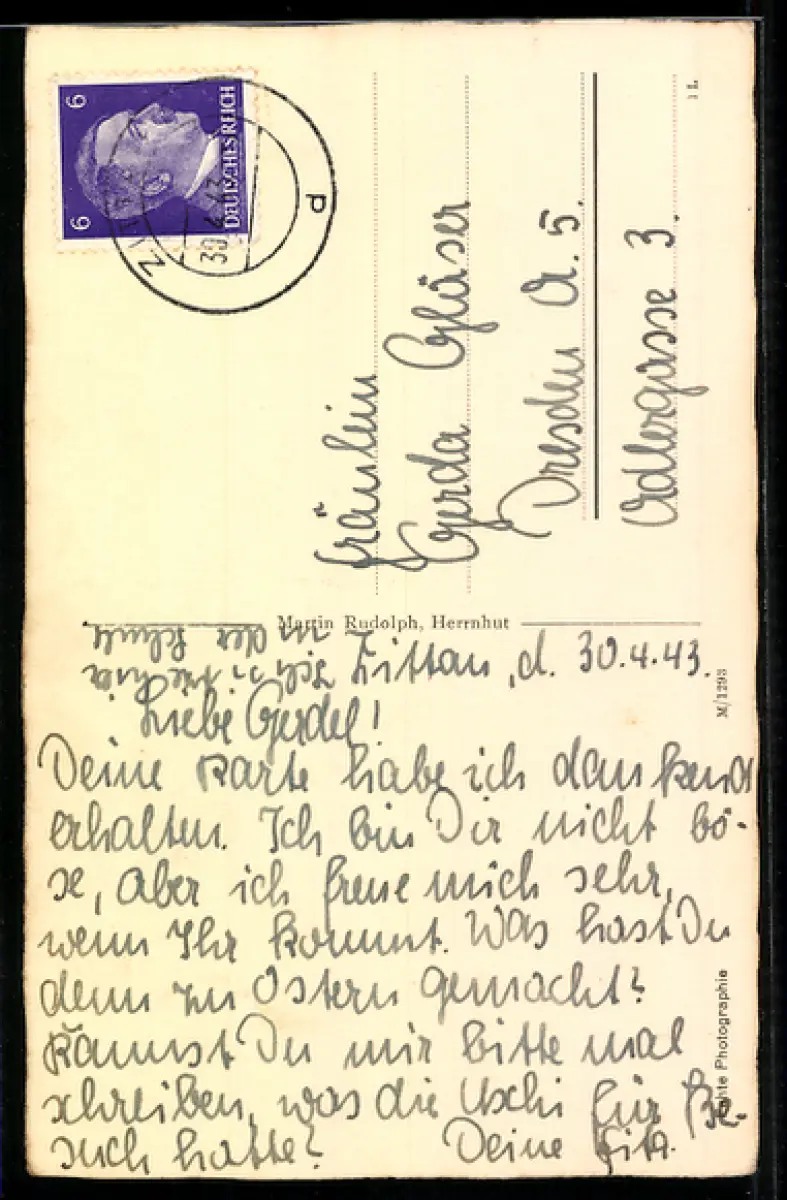 6 6
DEUTSCHES REICH
30.4.43
d
1 L
Fräulein
Gerda Gläser
Dresden A. 5.
Adlergasse 3.
Martin Rudolph, Herrnhut
in der Schule
Zittau, d. 30.4.43.
M/1293
Liebe Gerdel!
Deine Karte habe ich dankend
erhalten. Ich bin Dir nicht bö-
se, aber ich freue mich sehr,
wenn Ihr kommt. Was hast Du
denn zu Ostern gemacht?
Kannst Du mir bitte mal
schreiben, was die Uschi für Be-
such hatte? Deine
Echte Photographie